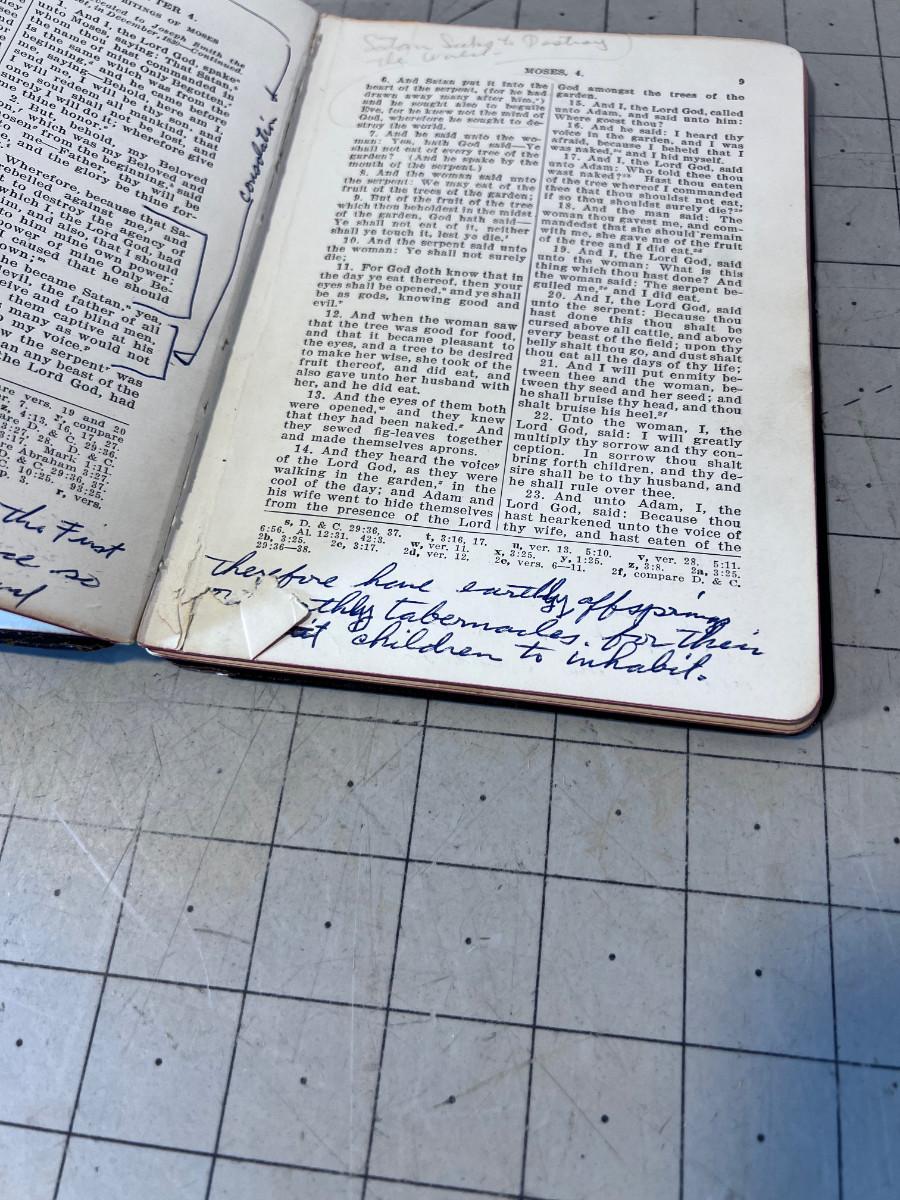 TER 4.
RITINGS OF MOSES
vealed to Joseph Smith the
et, in December, 1830—Continued.
1. And I, the Lord God, spake
unto Moses, saying: That Satan,
whom thou hast commanded in
the name of mine Only Begotten,
is the same which was from the
beginning, and he came before
me, saying—Behold, here am I,
send me, I will be thy son, and
I will redeem all mankind, that
one soul shall not be lost, and
surely I will do it; wherefore give
me thine honor.
2. But, behold, my Beloved
Son, which was my Beloved and
Chosen from the beginning, said
unto me—Father, thy will be
done, and the glory be thine for-
Wherefore, because that Sa-
rebelled against me, and
to destroy the agency of
which I, the Lord God, had
him, and also, that I should
to him mine own power;
power of mine Only Be-
I caused that he should
own;
he became Satan, yea,
devil, the father of all
ceive and to blind men,
them captive at his
as many as would not
to my voice.
w the serpent was
an any beast of the
the Lord God, had
are vers. 19 and 20
the First
ce so
consolation
Satan Seeks to Destroy
the World
MOSES, 4.
9
6. And Satan put it into the
heart of the serpent, (for he had
drawn away many after him,)
and he sought also to beguile
Eve, for he knew not the mind of
God, wherefore he sought to de-
stroy the world.
7. And he said unto the wo-
man: Yea, hath God said—Ye
shall not eat of every tree of the
garden? (And he spake by the
mouth of the serpent.)
8. And the woman said unto
the serpent: We may eat of the
fruit of the trees of the garden;
9. But of the fruit of the tree
which thou beholdest in the midst
of the garden, God hath said—
Ye shall not eat of it, neither
shall ye touch it, lest ye die.
10. And the serpent said unto
the woman: Ye shall not surely
die;
11. For God doth know that in
the day ye eat thereof, then your
eyes shall be opened, and ye shall
be as gods, knowing good and
evil.
12. And when the woman saw
that the tree was good for food,
and that it became pleasant to
the eyes, and a tree to be desired
to make her wise, she took of the
fruit thereof, and did eat, and
also gave unto her husband with
her, and he did eat.
13. And the eyes of them both
were opened, and they knew
that they had been naked. And
they sewed fig-leaves together
and made themselves aprons.
14. And they heard the voice
of the Lord God, as they were
walking in the garden, in the
cool of the day; and Adam and
his wife went to hide themselves
from the presence of the Lord
God amongst the trees of the
garden.
15. And I, the Lord God, called
unto Adam, and said unto him:
Where goest thou?
16. And he said: I heard thy
voice in the garden, and I was
afraid, because I beheld that I
was naked, and I hid myself.
17. And I, the Lord God, said
unto Adam: Who told thee thou
wast naked? Hast thou eaten
of the tree whereof I commanded
thee that thou shouldst not eat,
if so thou shouldst surely die?
18. And the man said: The
woman thou gavest me, and com-
mandedst that she should remain
with me, she gave me of the fruit
of the tree and I did eat.
19. And I, the Lord God, said
unto the woman: What is this
thing which thou hast done? And
the woman said: The serpent be-
guiled me, and I did eat.
20. And I, the Lord God, said
unto the serpent: Because thou
hast done this thou shalt be
cursed above all cattle, and above
every beast of the field; upon thy
belly shalt thou go, and dust shalt
thou eat all the days of thy life;
21. And I will put enmity be-
tween thee and the woman, be-
tween thy seed and her seed; and
he shall bruise thy head, and thou
shalt bruise his heel.
22. Unto the woman, I, the
Lord God, said: I will greatly
multiply thy sorrow and thy con-
ception. In sorrow thou shalt
bring forth children, and thy de-
sire shall be to thy husband, and
he shall rule over thee.
23. And unto Adam, I, the
Lord God, said: Because thou
hast hearkened unto the voice of
thy wife, and hast eaten of the
s, D. & C. 29:36, 37. t, 3:16, 17. u, ver. 13. 5:10. v, ver. 28. 5:11.
6:56. Al. 12:31. 42:3. w, ver. 11. x, 3:25. y, 1:25. z, 3:8. 2a, 3:25.
2b, 3:25. 2c, 3:17. 2d, ver. 12. 2e, vers. 6—11. 2f, compare D. & C.
29:36—38.
therefore have earthly offspring
thly tabernacles. for their
it children to inhabit.